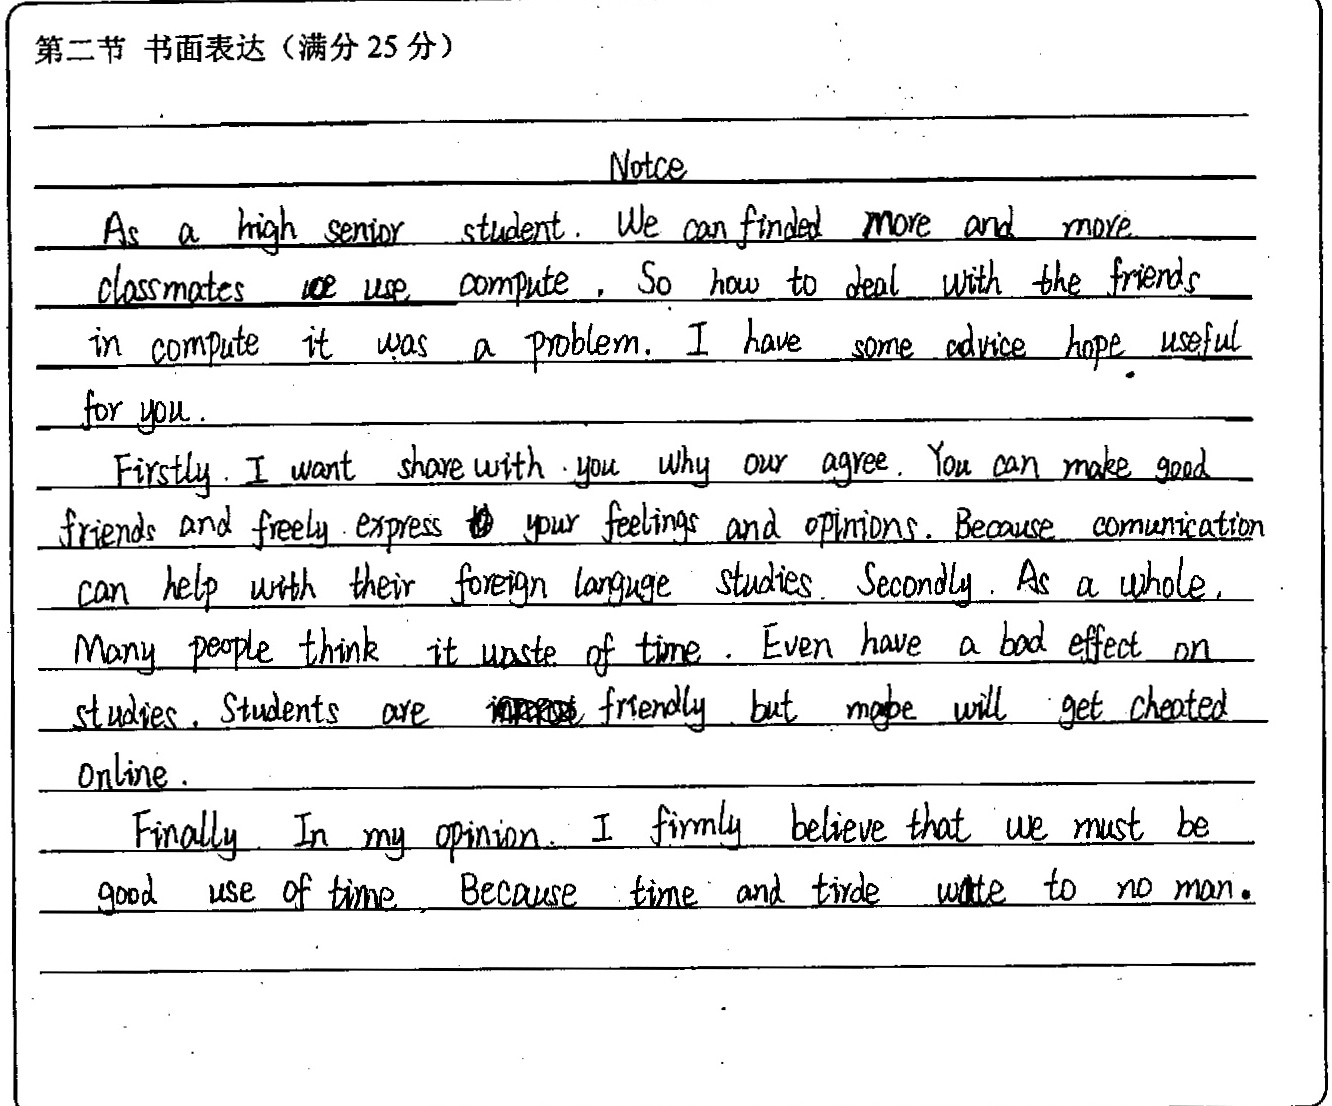 第二节 书面表达（满分 25 分）
Notce
As a high senior student. We can finded more and more
classmates use compute. So how to deal with the friends
in compute it was a problem. I have some advice hope useful
for you.
Firstly. I want share with you why our agree. You can make good
friends and freely express your feelings and opinions. Because comunication
can help with their foreign languge studies. Secondly. As a whole,
Many people think it waste of time. Even have a bad effect on
studies. Students are friendly but mabe will get cheated
online.
Finally. In my opinion. I firmly believe that we must be
good use of time. Because time and tirde to no man.